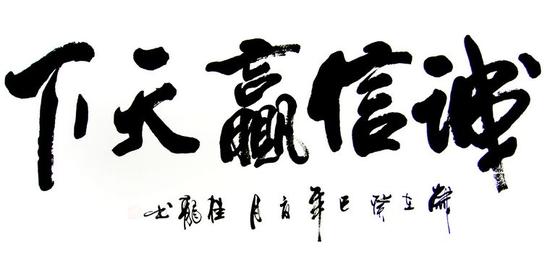 诚信赢天下
岁在癸巳年吉月桂龙书